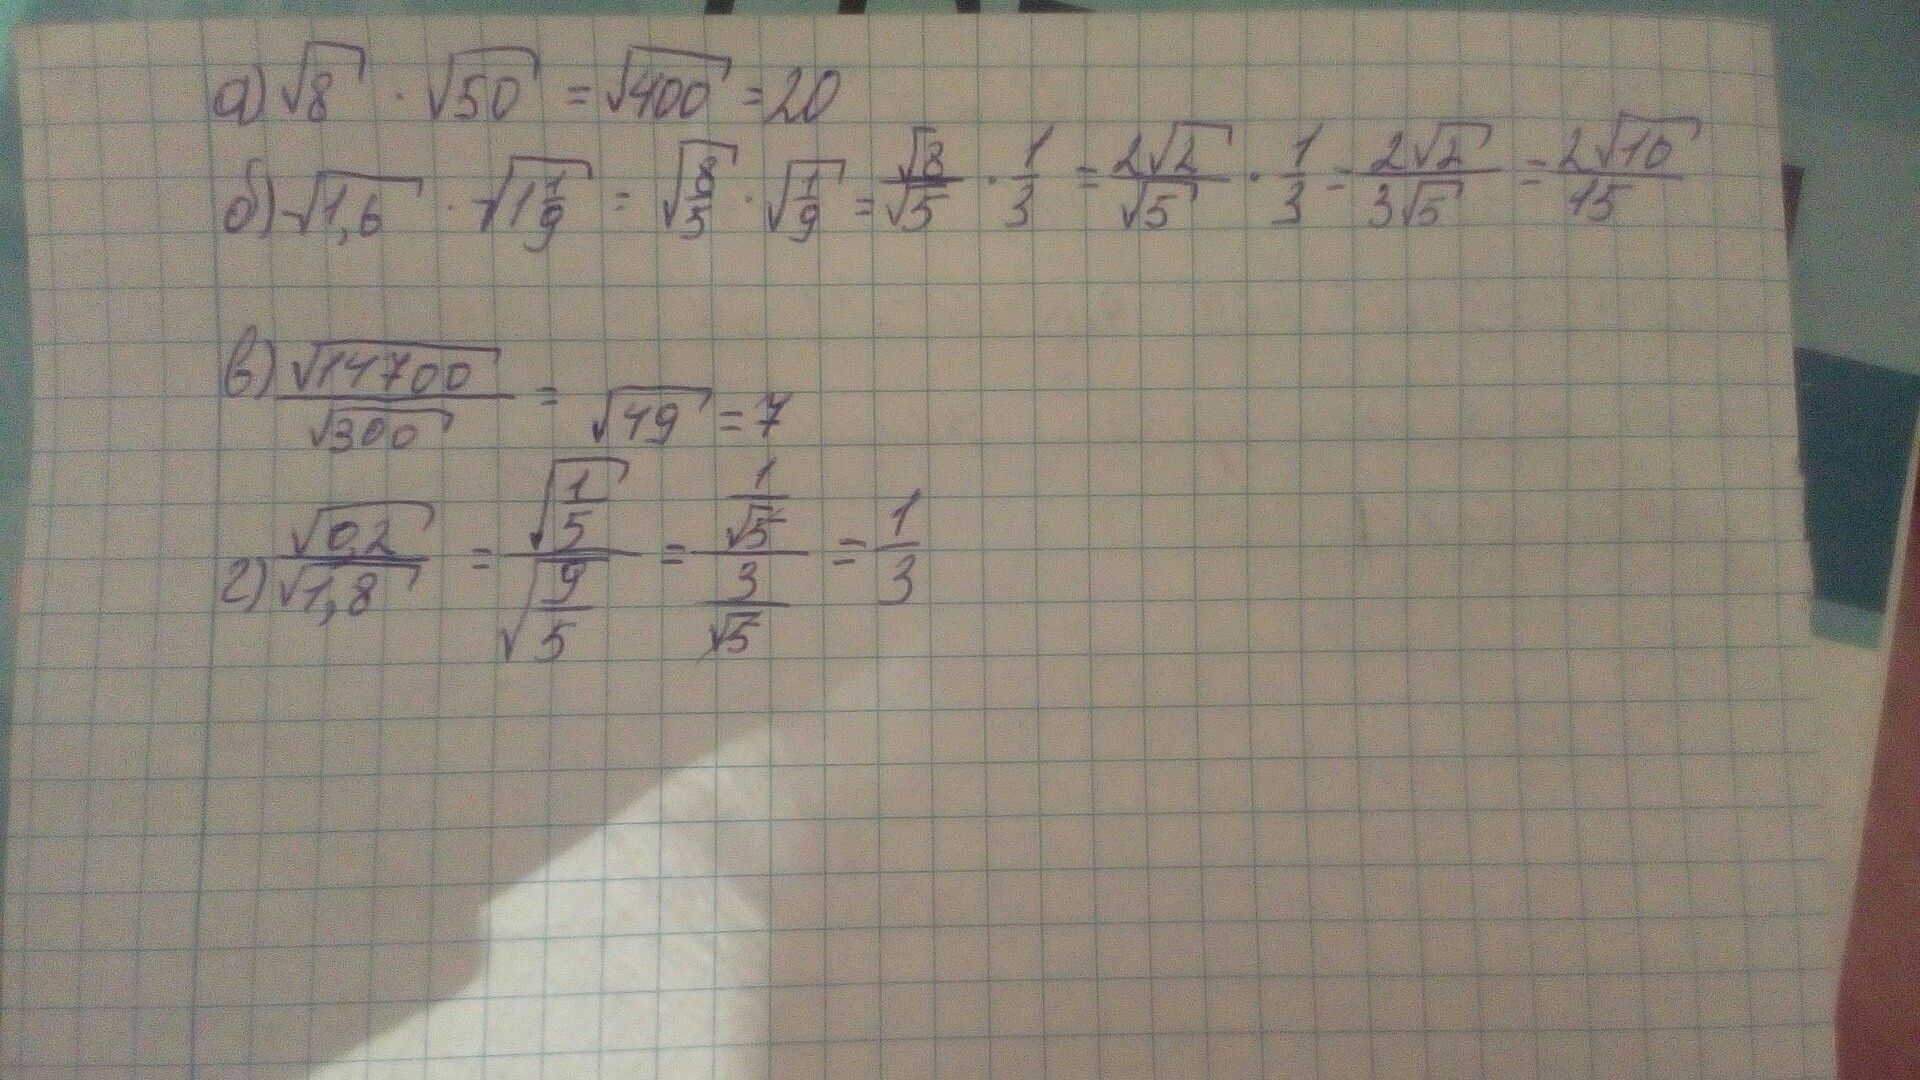 а) √8 · √50 = √400 = 20
б) √1,6 · √1 1/9 = √8/5 · √1/9 = √8/√5 · 1/3 = 2√2/√5 · 1/3 = 2√2/3√5 = 2√10/15
в) √14700/√300 = √49 = 7
г) √0,2/√1,8 = √1/5 / √9/5 = 1/√5 / 3/√5 = 1/3